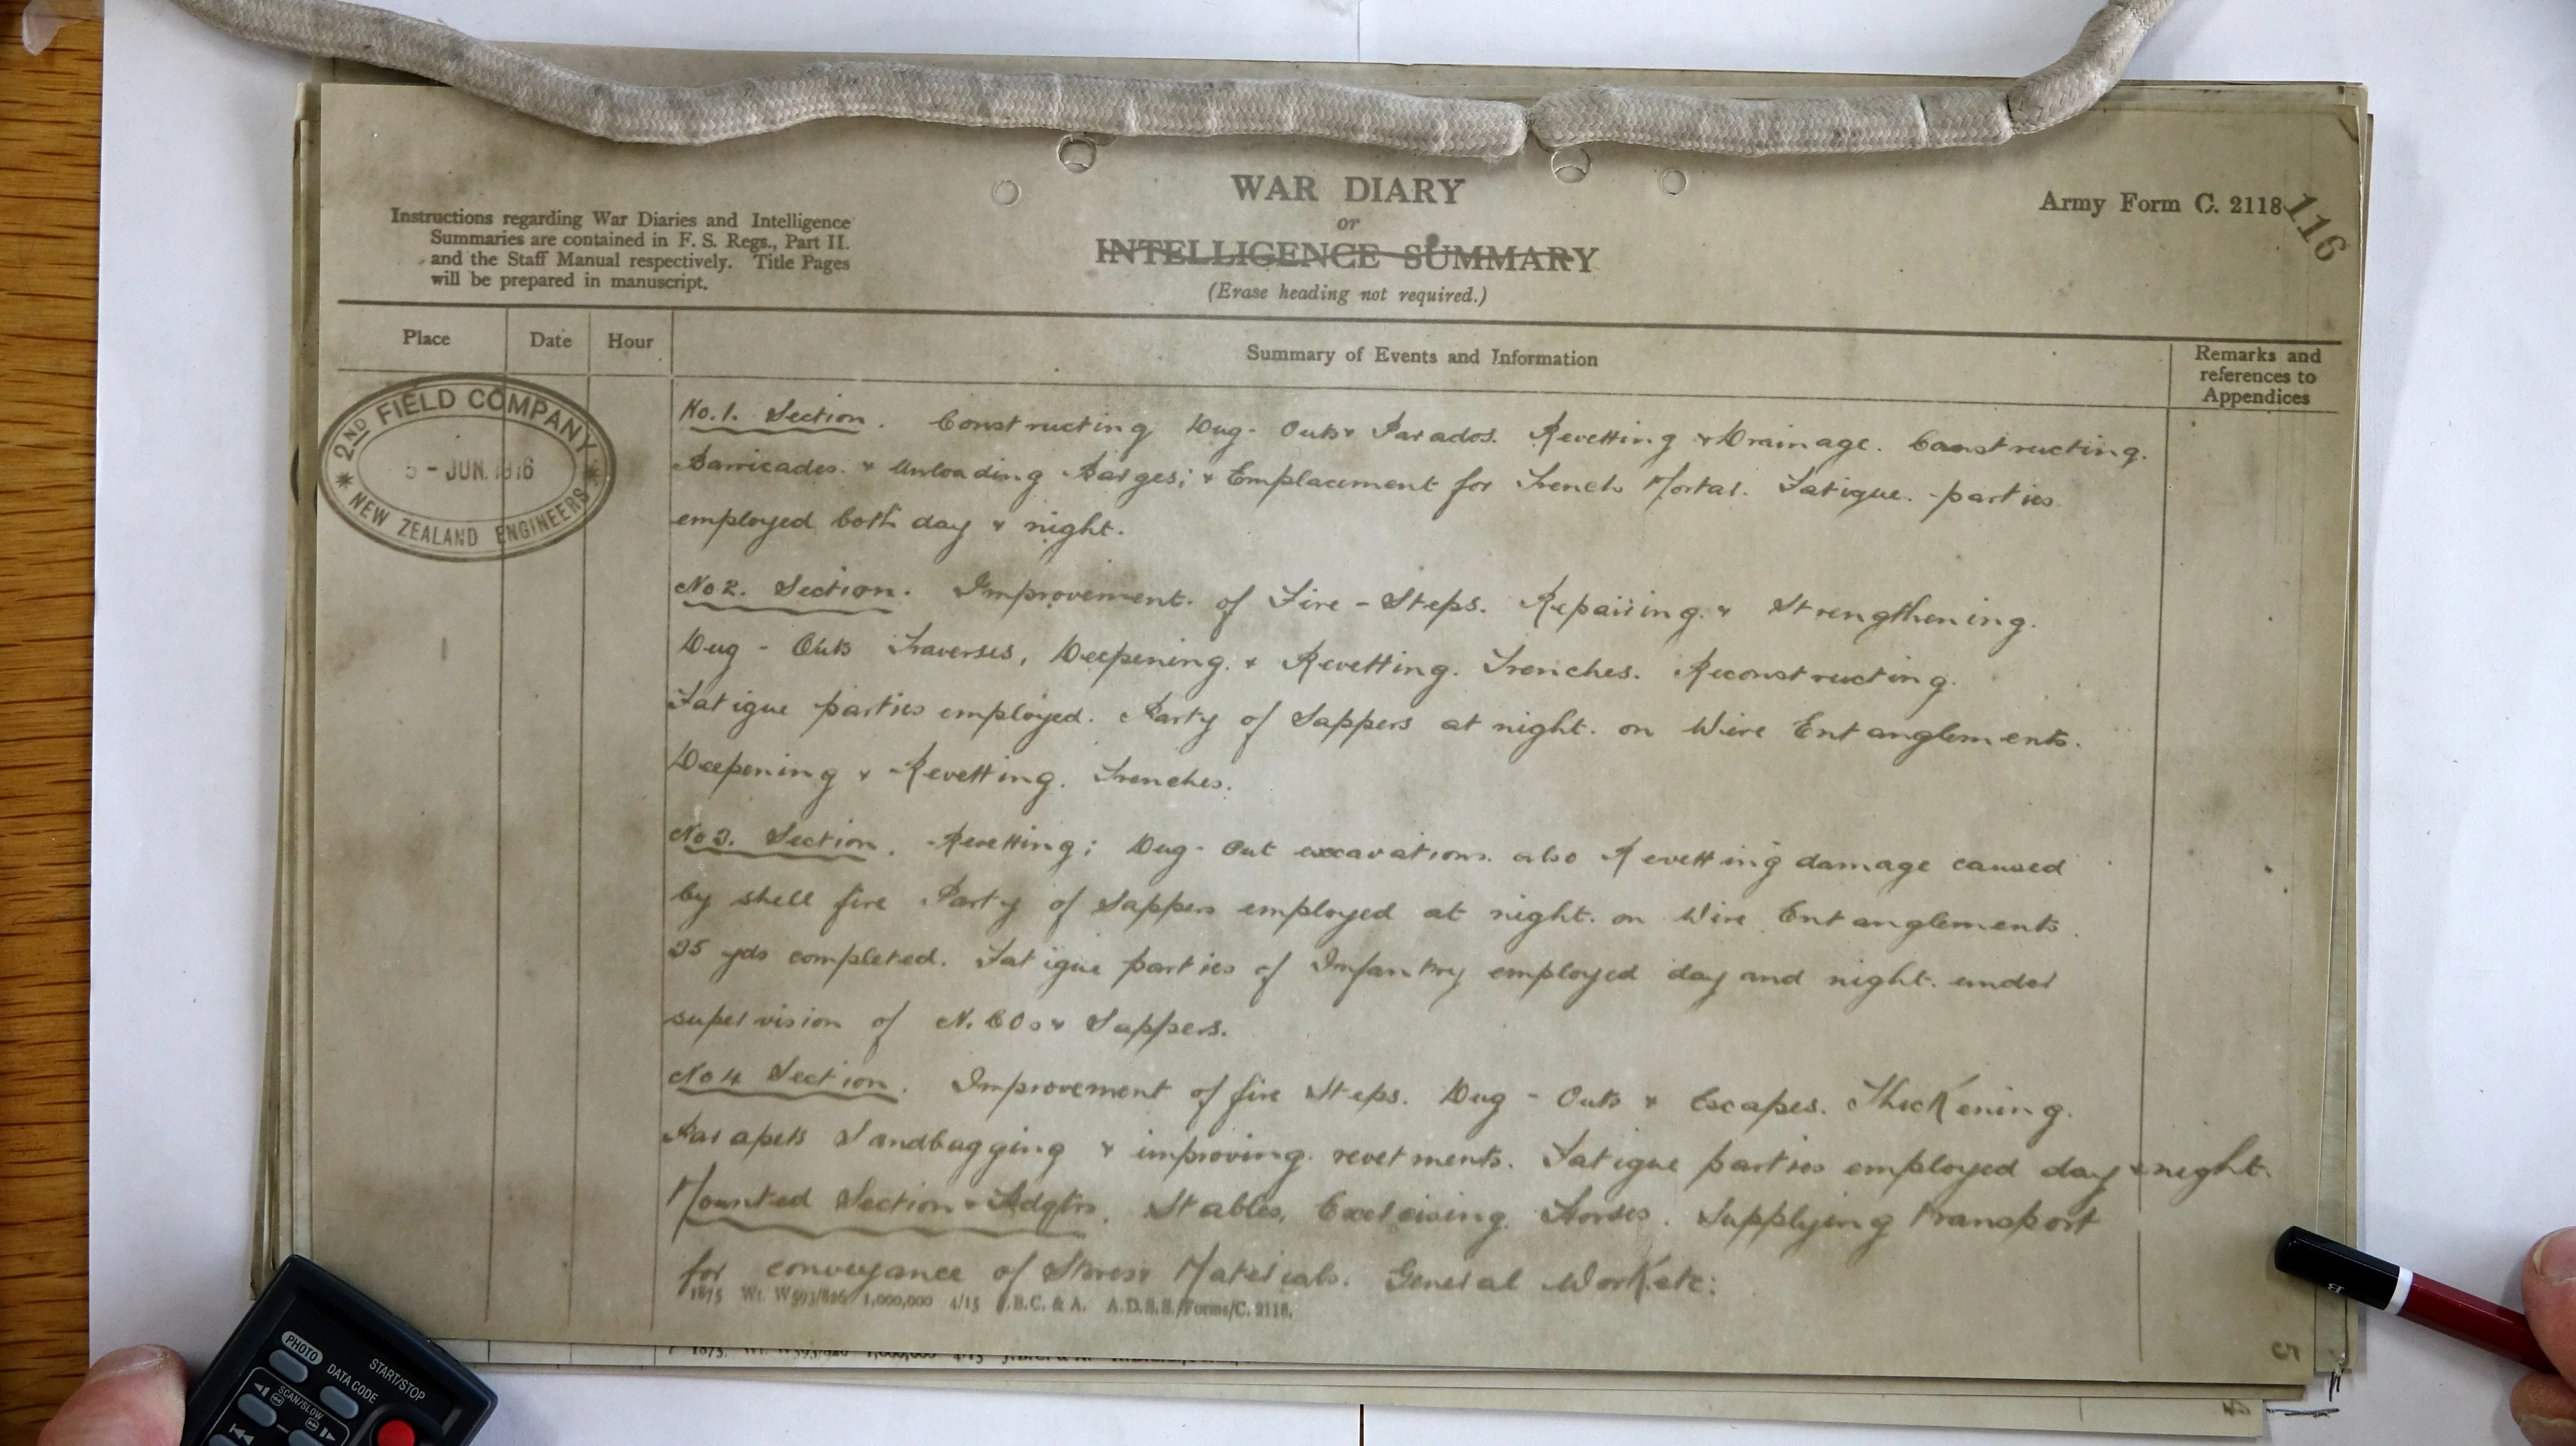 WAR DIARY
or
INTELLIGENCE SUMMARY
(Erase heading not required.)
Army Form C. 2118
116
Instructions regarding War Diaries and Intelligence
Summaries are contained in F. S. Regs., Part II.
and the Staff Manual respectively. Title Pages
will be prepared in manuscript.
Place Date Hour Summary of Events and Information Remarks and
references to
Appendices
2ND FIELD COMPANY
5 - JUN. 1916
NEW ZEALAND ENGINEERS
No. 1. Section. Constructing Dug-Outs & Parados. Revetting & Drainage. Constructing.
Barricades. & Unloading Barges; & Emplacement for Trench Mortar. Fatigue. - parties
employed both day & night.
No 2. Section. Improvement. of Fire - Steps. Repairing. & Strengthening.
Dug - Outs Traverses, Deepening. & Revetting. Trenches. Reconstructing.
Fatigue parties employed. Party of Sappers at night. on Wire Entanglements.
Deepening & Revetting. Trenches.
No 3. Section. Revetting; Dug-Out excavations. also Revetting damage caused
by shell fire Party of Sappers employed at night. on Wire Entanglements.
35 yds completed. Fatigue parties of Infantry employed day and night. under
supervision of N.COs & Sappers.
No 4 Section. Improvement of fire Steps. Dug - Outs & Escapes. Thickening.
Parapets Sandbagging & improving. revetments. Fatigue parties employed day & night.
Mounted Section & Hdqtrs. Stables, Exercising Horses. Supplying transport
for conveyance of Stores & Materials. General Work etc:
1875 Wt. W593/826 1,000,000 4/15 J.B.C. & A. A.D.S.S./Forms/C. 2118.
5
PHOTO
DATA CODE
START/STOP
SCAN/SLOW
B